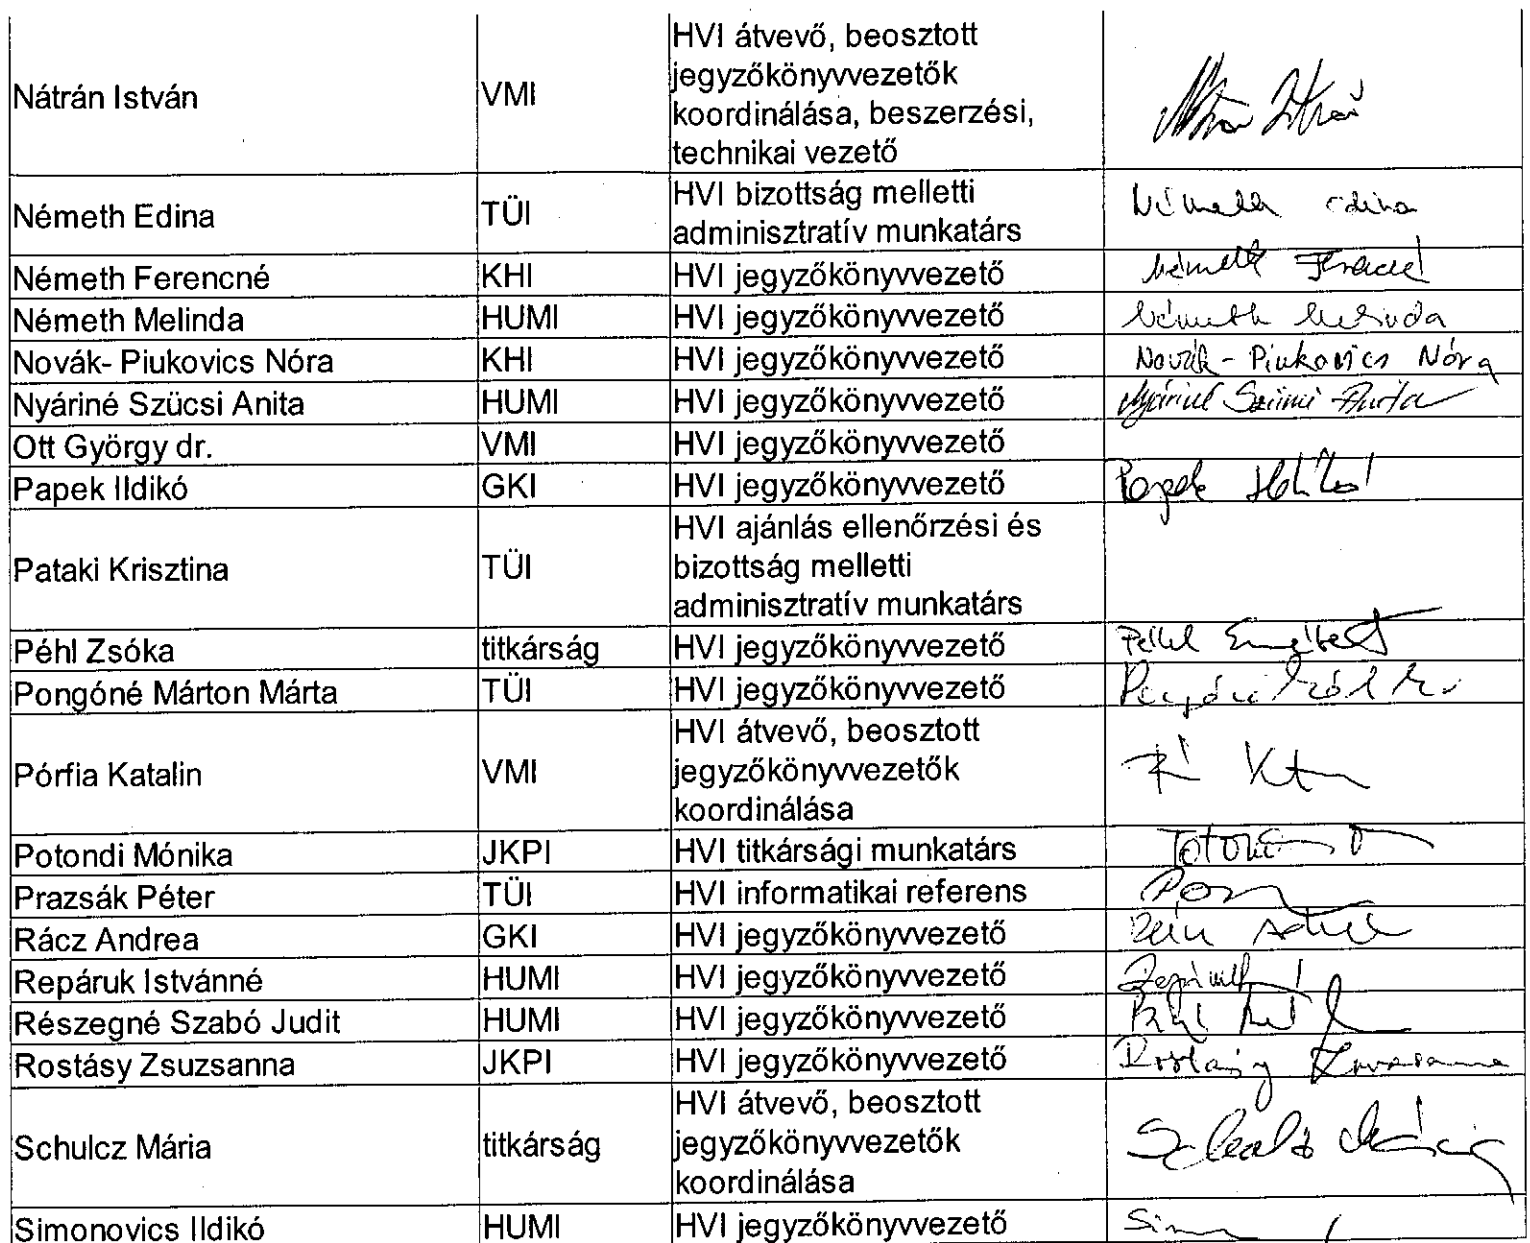 Nátrán István VMI HVI átvevő, beosztott
jegyzőkönyvvezetők
koordinálása, beszerzési,
technikai vezető
Németh Edina TÜI HVI bizottság melletti Németh Edina
adminisztratív munkatárs
Németh Ferencné KHI HVI jegyzőkönyvvezető Németh Ferencné
Németh Melinda HUMI HVI jegyzőkönyvvezető Németh Melinda
Novák- Piukovics Nóra KHI HVI jegyzőkönyvvezető Novák-Piukovics Nóra
Nyáriné Szücsi Anita HUMI HVI jegyzőkönyvvezető Nyáriné Szücsi Anita
Ott György dr. VMI HVI jegyzőkönyvvezető
Papek Ildikó GKI HVI jegyzőkönyvvezető Papek Ildikó
Pataki Krisztina TÜI HVI ajánlás ellenőrzési és
bizottság melletti
adminisztratív munkatárs
Péhl Zsóka titkárság HVI jegyzőkönyvvezető
Pongóné Márton Márta TÜI HVI jegyzőkönyvvezető
Pórfia Katalin VMI HVI átvevő, beosztott
jegyzőkönyvvezetők
koordinálása
Potondi Mónika JKPI HVI titkársági munkatárs
Prazsák Péter TÜI HVI informatikai referens
Rácz Andrea GKI HVI jegyzőkönyvvezető
Repáruk Istvánné HUMI HVI jegyzőkönyvvezető
Részegné Szabó Judit HUMI HVI jegyzőkönyvvezető
Rostásy Zsuzsanna JKPI HVI jegyzőkönyvvezető Rostásy Zsuzsanna
Schulcz Mária titkárság HVI átvevő, beosztott
jegyzőkönyvvezetők
koordinálása
Simonovics Ildikó HUMI HVI jegyzőkönyvvezető